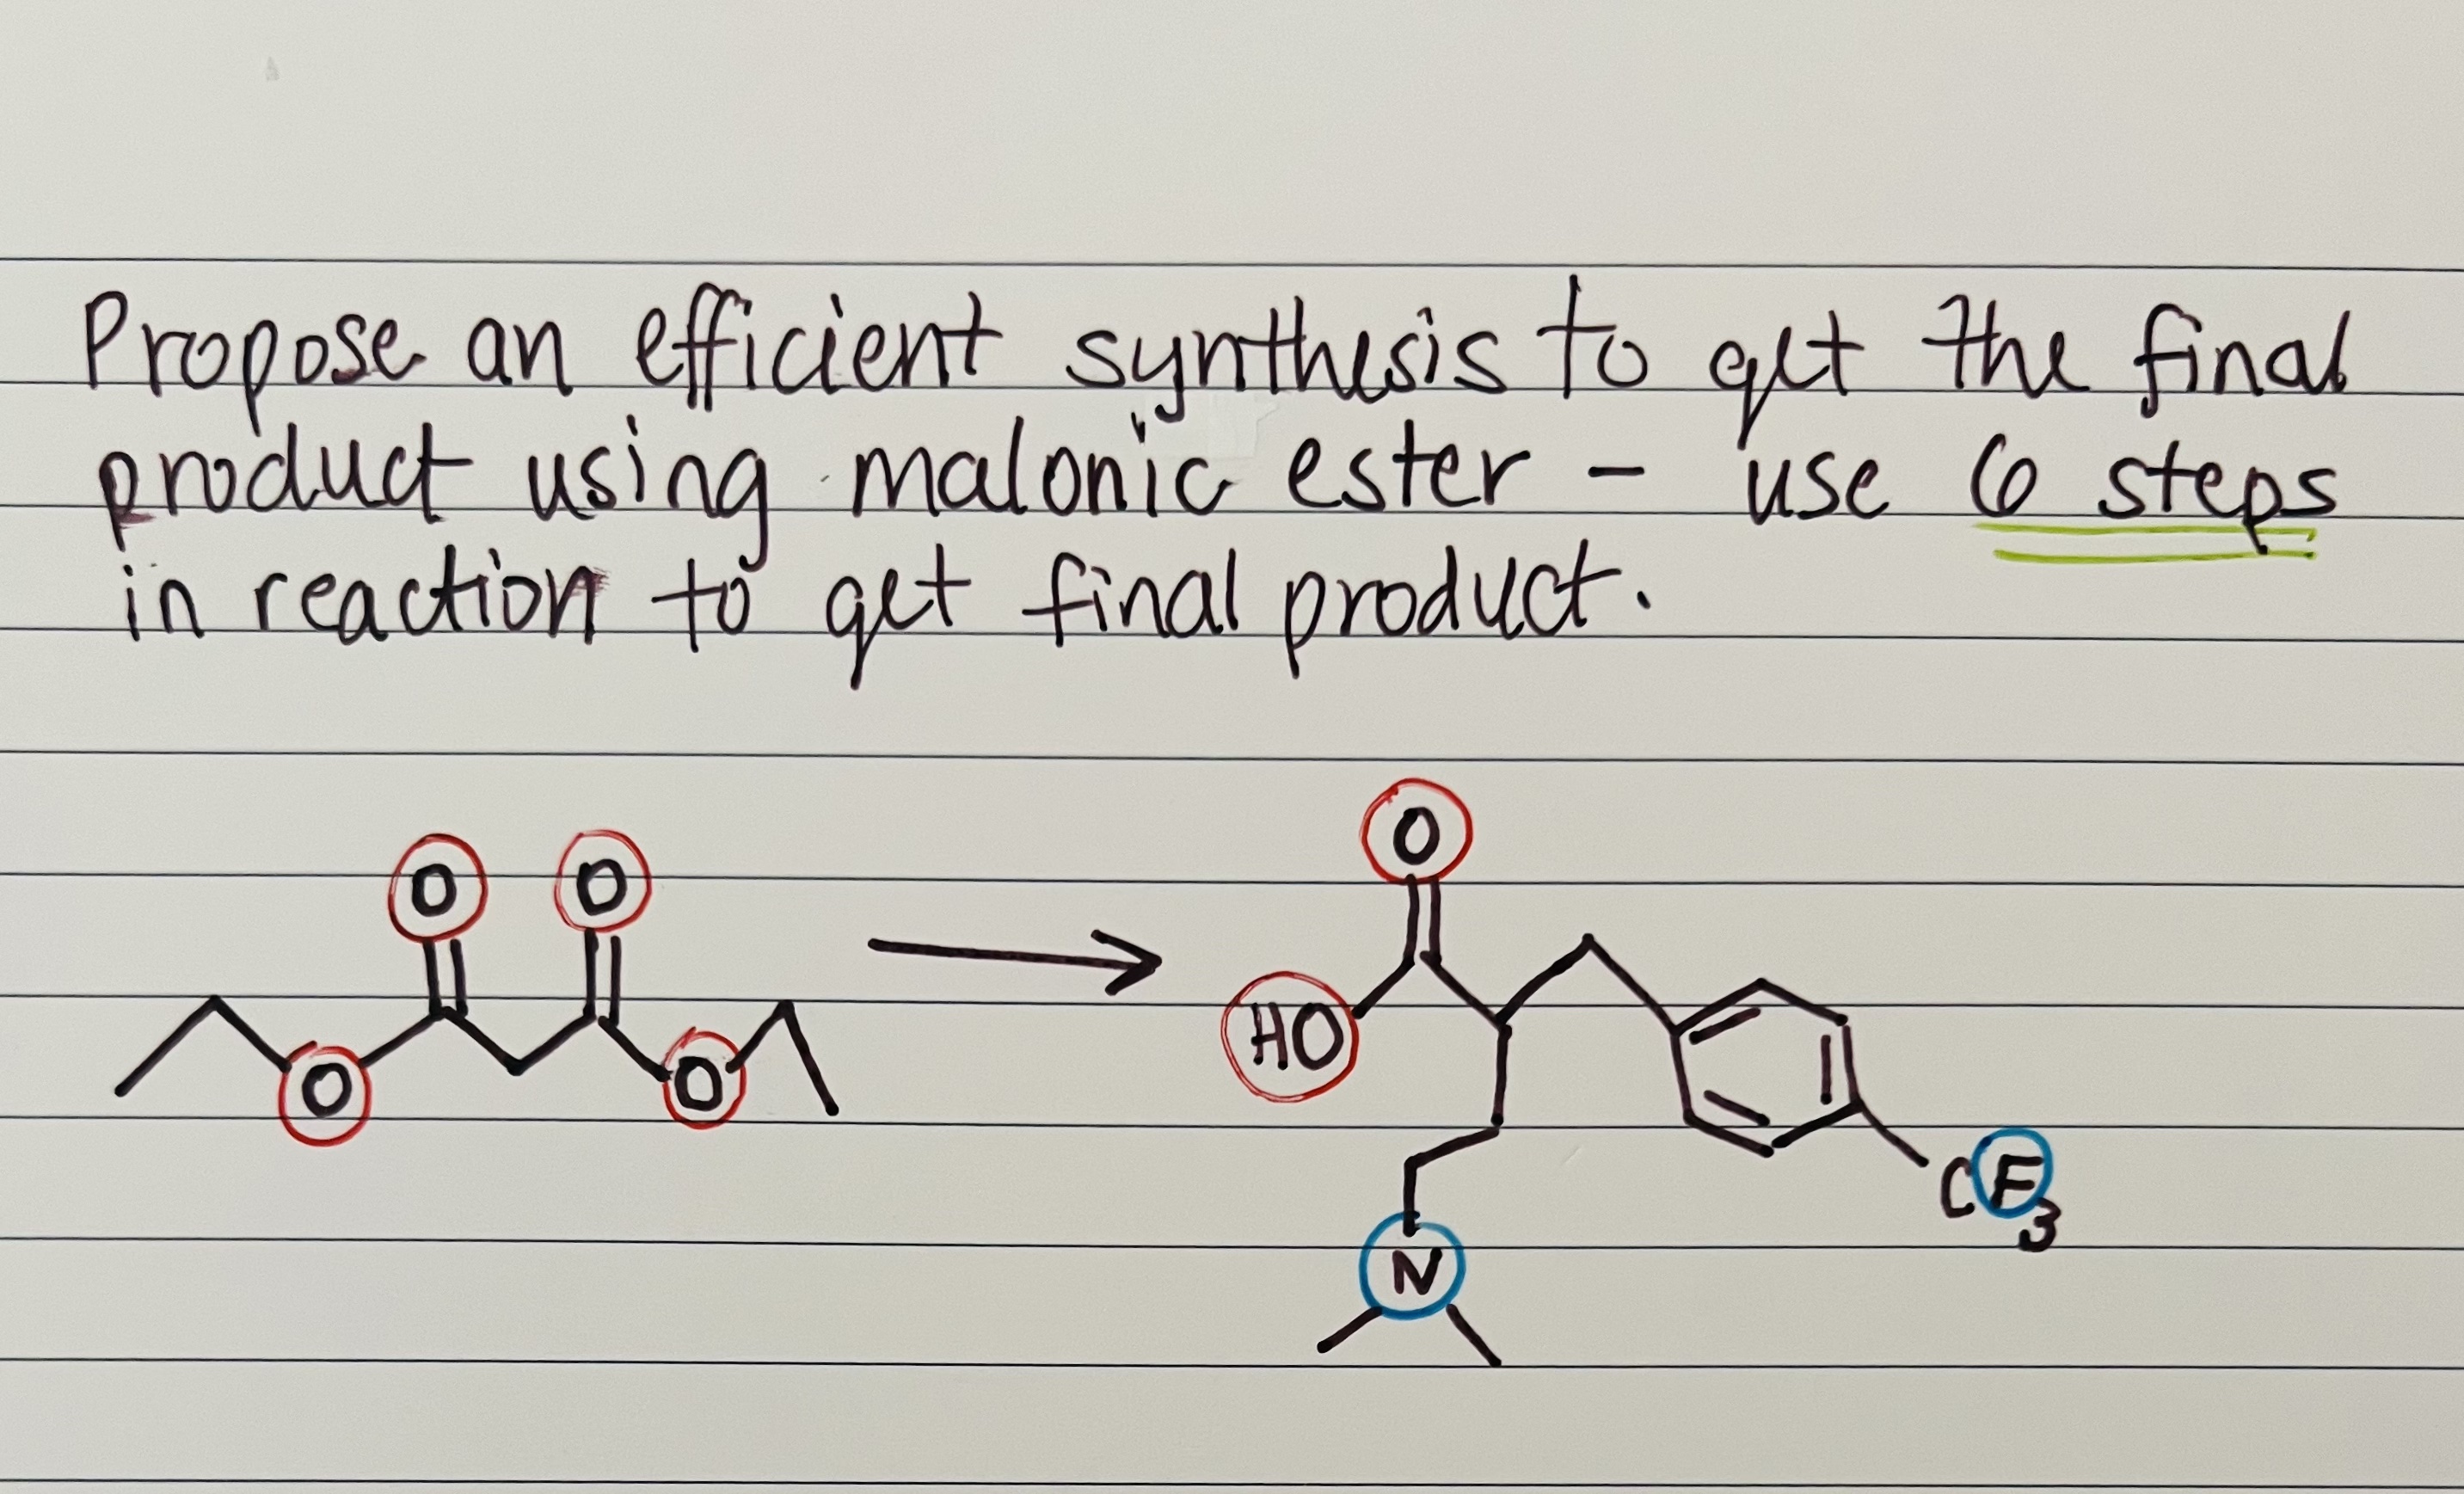 Propose an efficient synthesis to get the final
product using malonic ester - use 6 steps
in reaction to get final product.
O
O
O
O
O
HO
N
CF3